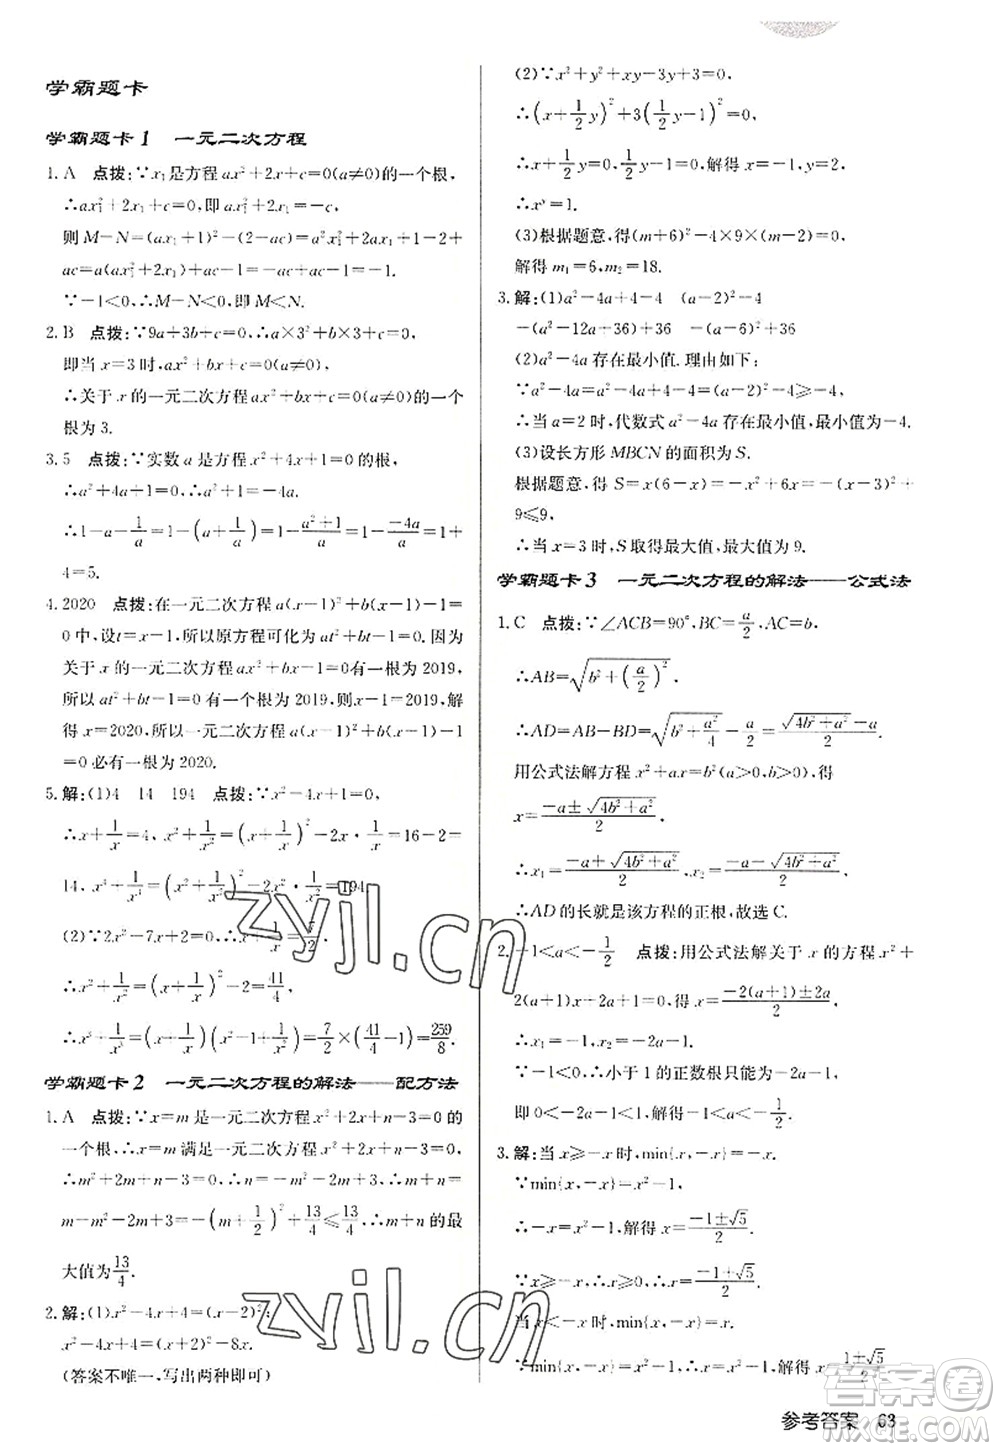 学霸题卡
学霸题卡1 一元二次方程
1. A 点拨:∵x₁是方程ax²+2x+c=0(a≠0)的一个根,
∴ax₁²+2x₁+c=0,即ax₁²+2x₁=-c,
则M-N=(ax₁+1)²-(2-ac)=a²x₁²+2ax₁+1-2+
ac=a(ax₁²+2x₁)+ac-1=-ac+ac-1=-1.
∵-1<0,∴M-N<0,即M<N.
2. B 点拨:∵9a+3b+c=0,∴a×3²+b×3+c=0,
即当x=3时,ax²+bx+c=0(a≠0),
∴关于x的一元二次方程ax²+bx+c=0(a≠0)的一个
根为3.
3. 5 点拨:∵实数a是方程x²+4x+1=0的根,
∴a²+4a+1=0,∴a²+1=-4a.
∴1-a-1/a=1-(a+1/a)=1-(a²+1)/a=1-(-4a)/a=1+
4=5.
4. 2020 点拨:在一元二次方程a(x-1)²+b(x-1)-1=
0中,设t=x-1,所以原方程可化为at²+bt-1=0.因为
关于x的一元二次方程ax²+bx-1=0有一根为2019,
所以at²+bt-1=0有一个根为2019,则x-1=2019,解
得x=2020,所以一元二次方程a(x-1)²+b(x-1)-1=
0必有一根为2020.
5. 解:(1)4 14 194 点拨:∵x²-4x+1=0,
∴x+1/x=4,x²+1/x²=(x+1/x)²-2x·1/x=16-2=
14,x⁴+1/x⁴=(x²+1/x²)²-2x²·1/x²=194.
(2)∵2x²-7x+2=0,∴x+1/x=7/2,
∴x²+1/x²=(x+1/x)²-2=41/4,
∴x³+1/x³=(x+1/x)(x²-1+1/x²)=7/2×(41/4-1)=259/8.
学霸题卡2 一元二次方程的解法——配方法
1. A 点拨:∵x=m是一元二次方程x²+2x+n-3=0的
一个根,∴x=m满足一元二次方程x²+2x+n-3=0,
∴m²+2m+n-3=0,∴n=3-m²-2m,∴m+n=3+
m-m²-2m=-(m+1/2)²+13/4≤13/4,∴m+n的最
大值为13/4.
2. 解:(1)x²-4x+4=(x-2)²;
x²-4x+4=(x+2)²-8x.
(答案不唯一,写出两种即可)
(2)∵x²+y²+xy-3y+3=0,
∴(x+1/2y)²+3(1/2y-1)²=0,
∴x+1/2y=0,1/2y-1=0,解得x=-1,y=2,
∴xʸ=1.
(3)根据题意,得(m+6)²-4×9×(m-2)=0,
解得m₁=6,m₂=18.
3. 解:(1)a²-4a+4-4 (a-2)²-4
-(a²-12a+36)+36 -(a-6)²+36
(2)a²-4a存在最小值.理由如下:
∵a²-4a=a²-4a+4-4=(a-2)²-4≥-4,
∴当a=2时,代数式a²-4a存在最小值,最小值为-4.
(3)设长方形MBCN的面积为S.
根据题意,得S=x(6-x)=-x²+6x=-(x-3)²+
9≤9,
∴当x=3时,S取得最大值,最大值为9.
学霸题卡3 一元二次方程的解法——公式法
1. C 点拨:∵∠ACB=90°,BC=a/2,AC=b,
∴AB=√(b²+(a/2)²),
∴AD=AB-BD=√(b²+a²/4)-a/2=(√(4b²+a²)-a)/2.
用公式法解方程x²+ax=b²(a>0,b>0),得
x=(-a±√(4b²+a²))/2.
∴x₁=(-a+√(4b²+a²))/2,x₂=(-a-√(4b²+a²))/2,
∴AD的长就是该方程的正根,故选C.
2. -1<a<-1/2 点拨:用公式法解关于x的方程x²+
2(a+1)x+2a+1=0,得x=(-2(a+1)±2a)/2.
∴x₁=-1,x₂=-2a-1.
∵-1<0,∴小于1的正数根只能为-2a-1,
即0<-2a-1<1,解得-1<a<-1/2.
3. 解:当x≥-x时,min{x,-x}=-x.
∵min{x,-x}=x²-1,
∴-x=x²-1,解得x=(-1±√5)/2.
∵x≥-x,∴x≥0,∴x=(-1+√5)/2;
当x<-x时,min{x,-x}=x.
∵min{x,-x}=x²-1,∴x=x²-1,解得x=(1±√5)/2.
zyjl.cn
zyjl.cn
答案圈
参考答案 63